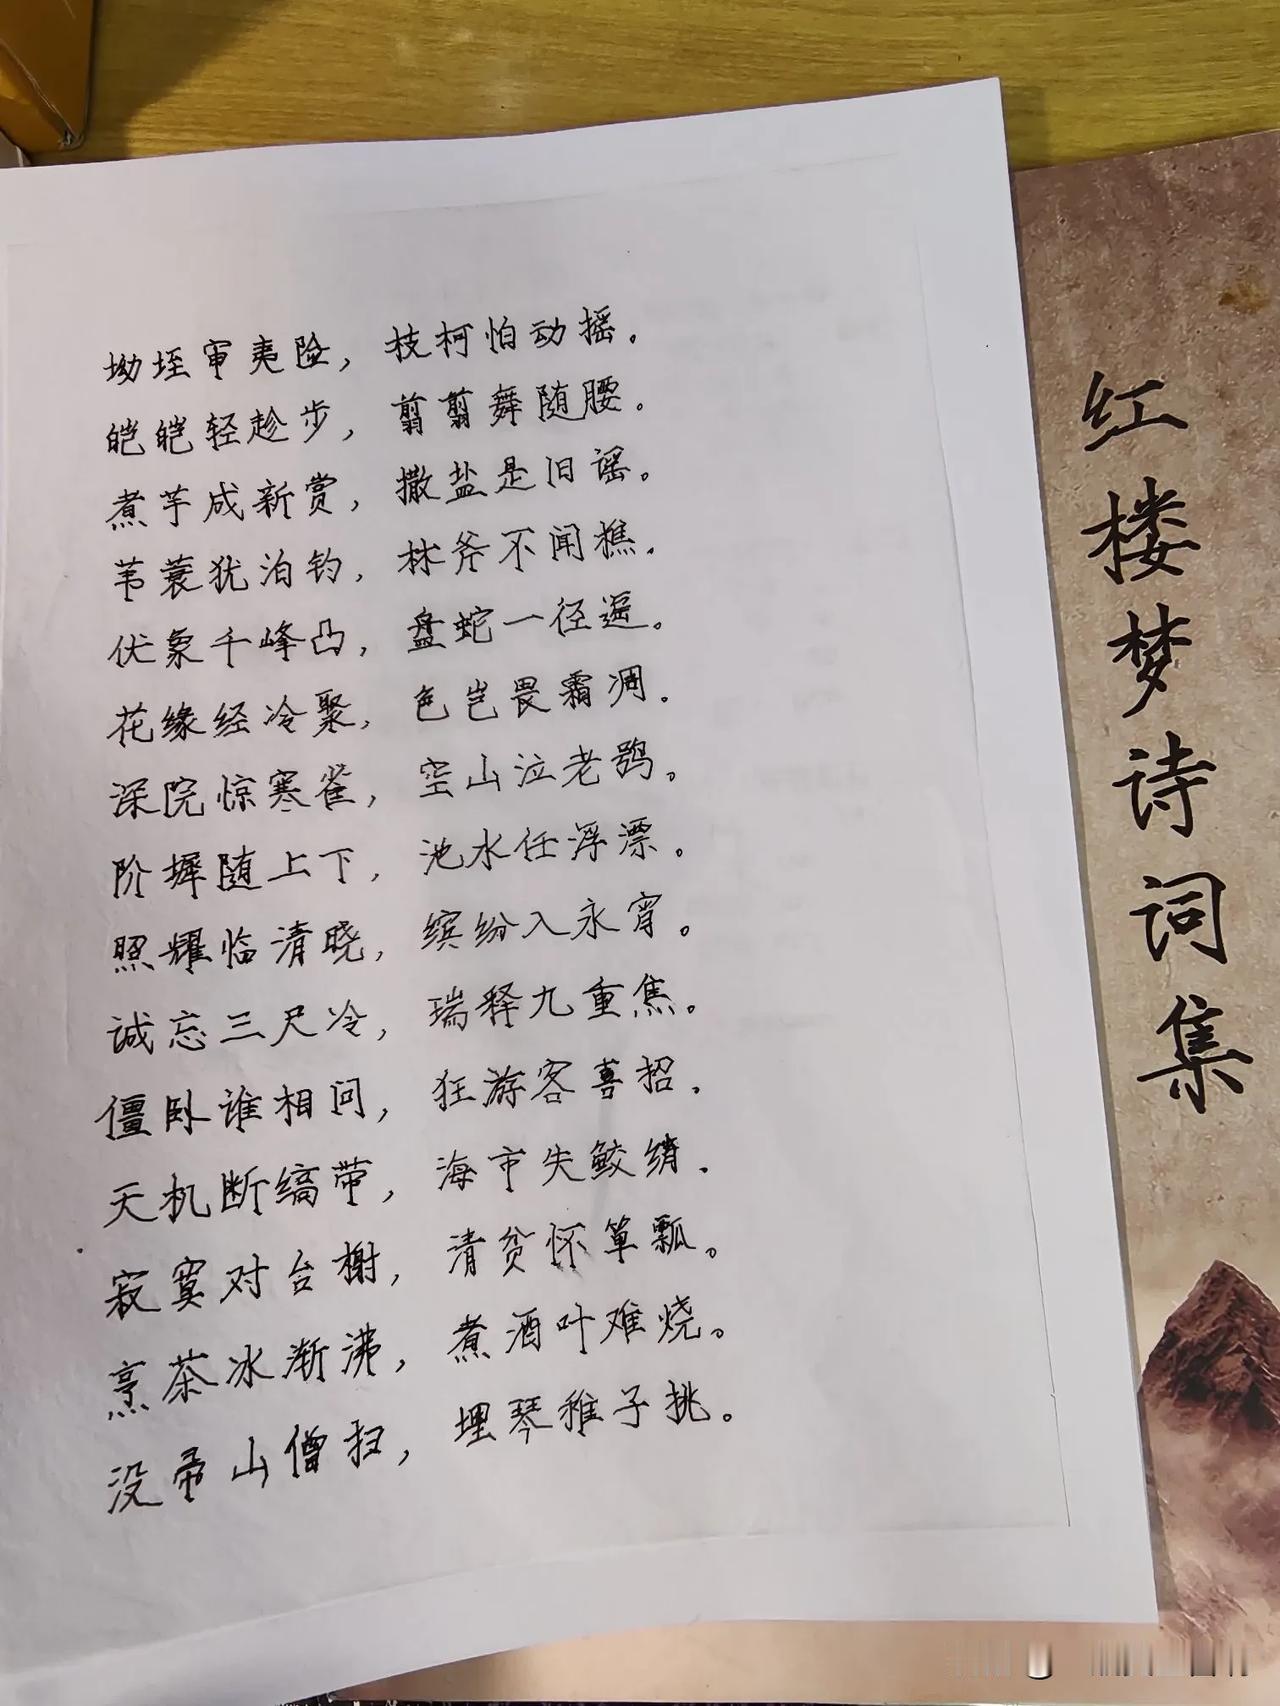 坳垤审夷险，枝柯怕动摇。
皑皑轻趁步，翦翦舞随腰。
煮芋成新赏，撒盐是旧谣。
苇蓑犹泊钓，林斧不闻樵。
伏象千峰凸，盘蛇一径遥。
花缘经冷聚，色岂畏霜凋。
深院惊寒雀，空山泣老鸮。
阶墀随上下，池水任浮漂。
照耀临清晓，缤纷入永宵。
诚忘三尺冷，瑞释九重焦。
僵卧谁相问，狂游客喜招。
天机断缟带，海市失鲛绡。
寂寞对台榭，清贫怀箪瓢。
烹茶冰渐沸，煮酒叶难烧。
没帚山僧扫，埋琴稚子挑。
红楼梦诗词集